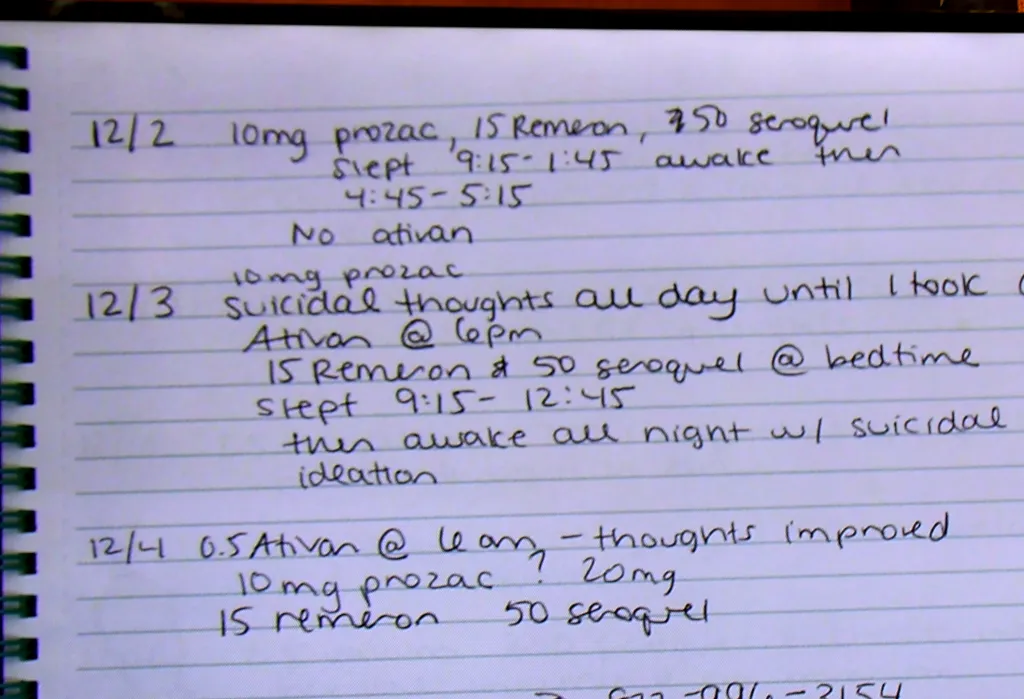 12/2 10mg prozac, 15 Remeron, & 50 seroquel
slept 9:15-1:45 awake then
4:45-5:15
No ativan
10mg prozac
12/3 suicidal thoughts all day until I took
Ativan @ 6pm
15 Remeron & 50 seroquel @ bedtime
slept 9:15- 12:45
then awake all night w/ suicidal
ideation
12/4 0.5 Ativan @ 6 am, - thoughts improved
10mg prozac ? 20mg
15 remeron 50 seroquel